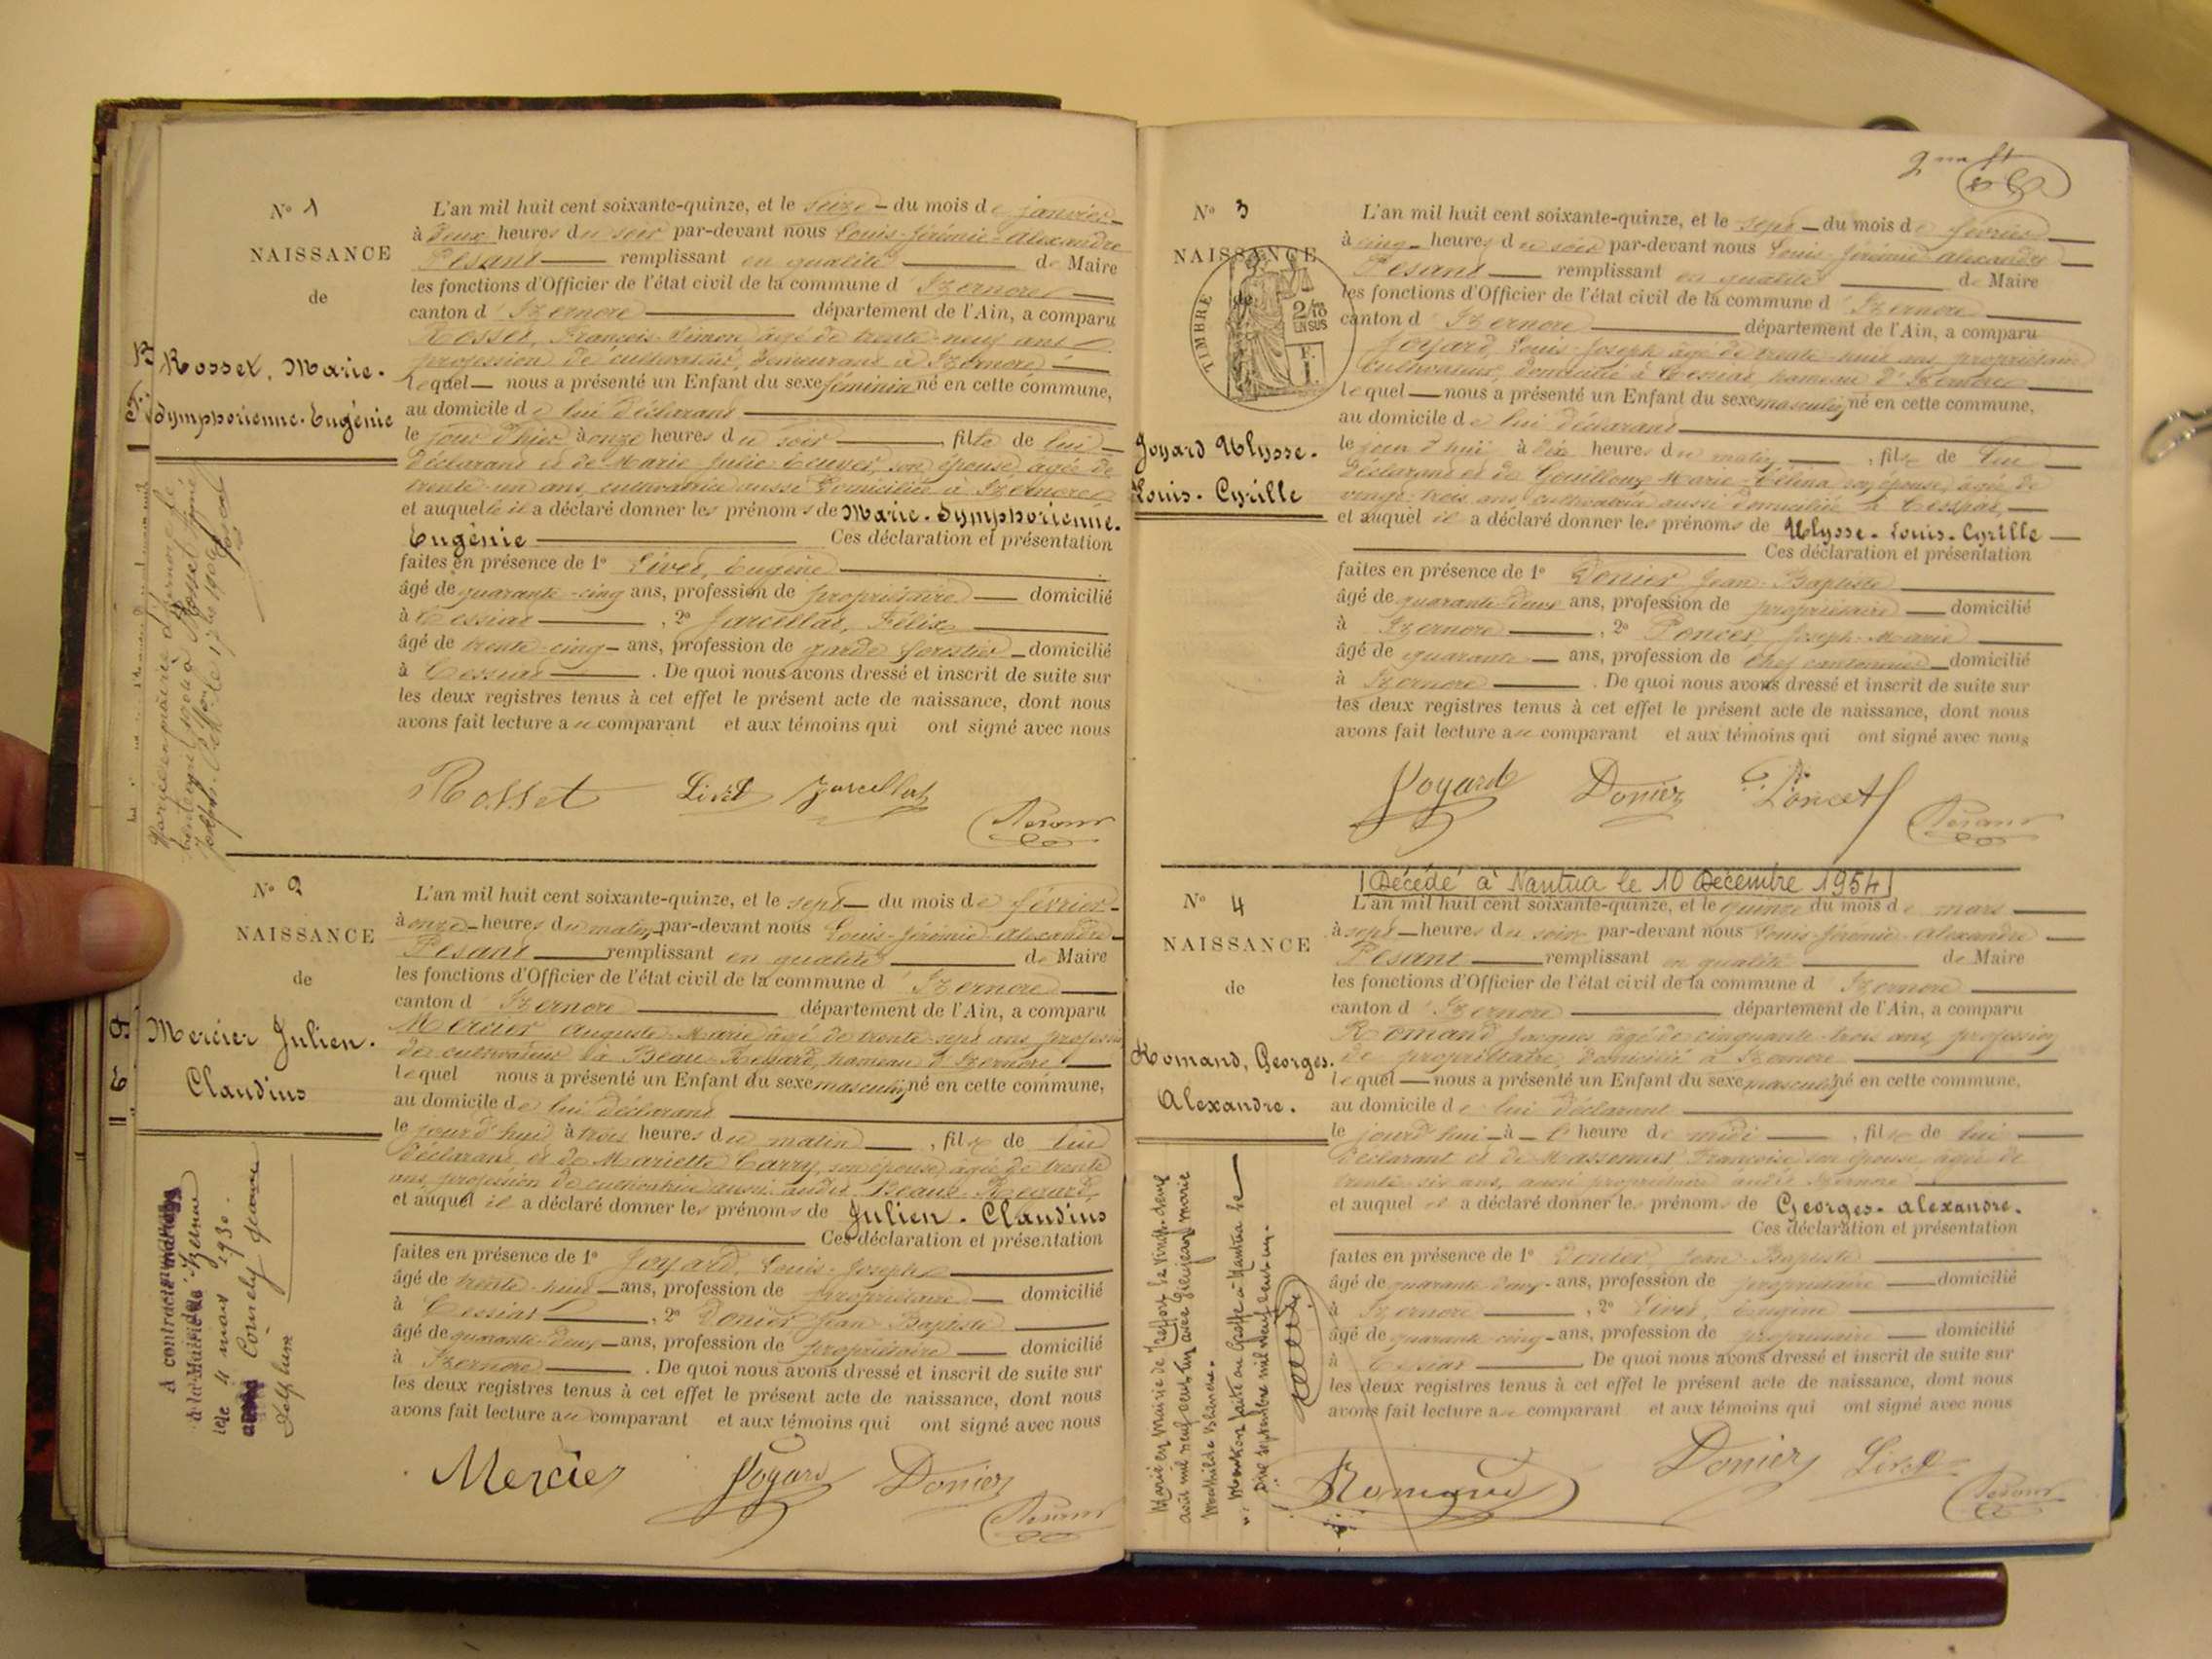 N° 1
NAISSANCE
de
Rosset, Marie-
Symphorienne-Eugénie
L'an mil huit cent soixante-quinze, et le seize du mois de janvier
à deux heures du soir par-devant nous Louis-Jérémie-Alexandre
Pesant remplissant en qualité de Maire
les fonctions d'Officier de l'état civil de la commune d'Izernore
canton d'Izernore département de l'Ain, a comparu
Rosset, François-Simon âgé de trente-neuf ans
profession de cultivateur, demeurant à Izernore
lequel nous a présenté un Enfant du sexe féminin né en cette commune,
au domicile de lui déclarant
le jour d'hier à onze heures du soir, fille de lui
déclarant et de Marie Julie son épouse, âgée de
trente-un ans, cultivatrice aussi domiciliée à Izernore
et auquel il a déclaré donner les prénoms de Marie-Symphorienne-
Eugénie Ces déclaration et présentation
faites en présence de 1° Livet, Eugène
âgé de quarante-cinq ans, profession de propriétaire domicilié
à Cessiat, 2° Jarcellat, Félix
âgé de trente-cinq ans, profession de garde forestier domicilié
à Cessiat. De quoi nous avons dressé et inscrit de suite sur
les deux registres tenus à cet effet le présent acte de naissance, dont nous
avons fait lecture au comparant et aux témoins qui ont signé avec nous
Rosset Livet Jarcellat
Pesant
N° 2
NAISSANCE
de
Mercier Julien-
Claudius
A contracté mariage
à la Mairie de Izernore
le 4 mars 1930
avec Comely Jeanne
Delphine
L'an mil huit cent soixante-quinze, et le sept du mois de février
à onze heures du matin par-devant nous Louis-Jérémie-Alexandre
Pesant remplissant en qualité de Maire
les fonctions d'Officier de l'état civil de la commune d'Izernore
canton d'Izernore département de l'Ain, a comparu
Mercier Auguste Marie âgé de trente-sept ans profession
de cultivateur à Beau-Regard, hameau d'Izernore
lequel nous a présenté un Enfant du sexe masculin né en cette commune,
au domicile de lui déclarant
le jourd'hui à trois heures du matin, fils de lui
déclarant et de Mariette Carry, son épouse, âgée de trente
ans, profession de cultivatrice aussi audit Beau-Regard,
et auquel il a déclaré donner les prénoms de Julien-Claudius
Ces déclaration et présentation
faites en présence de 1° Joyard, Louis-Joseph
âgé de trente-huit ans, profession de propriétaire domicilié
à Cessiat, 2° Donier Jean-Baptiste
âgé de quarante-deux ans, profession de propriétaire domicilié
à Izernore. De quoi nous avons dressé et inscrit de suite sur
les deux registres tenus à cet effet le présent acte de naissance, dont nous
avons fait lecture au comparant et aux témoins qui ont signé avec nous
Mercier Joyard Donier
Pesant
N° 3
NAISSANCE
de
TIMBRE
2/10 EN SUS
Joyard Ulysse-
Louis-Cyrille
L'an mil huit cent soixante-quinze, et le sept du mois de février
à cinq heures du soir par-devant nous Louis-Jérémie-Alexandre
Pesant remplissant en qualité de Maire
les fonctions d'Officier de l'état civil de la commune d'Izernore
canton d'Izernore département de l'Ain, a comparu
Joyard, Louis-Joseph âgé de trente-huit ans, propriétaire
cultivateur, domicilié à Cessiat, hameau d'Izernore
lequel nous a présenté un Enfant du sexe masculin né en cette commune,
au domicile de lui déclarant
le jourd'hui à dix heures du matin, fils de lui
déclarant et de Gouilloux Marie-Célina son épouse, âgée de
vingt-trois ans, cultivatrice aussi domiciliée à Cessiat,
et auquel il a déclaré donner les prénoms de Ulysse-Louis-Cyrille
Ces déclaration et présentation
faites en présence de 1° Donier Jean-Baptiste
âgé de quarante-deux ans, profession de propriétaire domicilié
à Izernore, 2° Poncet, Joseph-Marie
âgé de quarante ans, profession de chef cantonnier domicilié
à Izernore. De quoi nous avons dressé et inscrit de suite sur
les deux registres tenus à cet effet le présent acte de naissance, dont nous
avons fait lecture au comparant et aux témoins qui ont signé avec nous
Joyard Donier Poncet
Pesant
Décédé à Nantua le 10 Décembre 1954
N° 4
NAISSANCE
de
Romand, Georges-
Alexandre.
L'an mil huit cent soixante-quinze, et le quinze du mois de mars
à sept heures du soir par-devant nous Louis-Jérémie-Alexandre
Pesant remplissant en qualité de Maire
les fonctions d'Officier de l'état civil de la commune d'Izernore
canton d'Izernore département de l'Ain, a comparu
Romand Jacques âgé de cinquante-trois ans, profession
de propriétaire, domicilié à Izernore
lequel nous a présenté un Enfant du sexe masculin né en cette commune,
au domicile de lui déclarant
le jourd'hui à heure de midi, fils de lui
déclarant et de Françoise son épouse, âgée de
trente-six ans, aussi propriétaire audit Izernore
et auquel il a déclaré donner les prénoms de Georges-Alexandre.
Ces déclaration et présentation
faites en présence de 1° Donier, Jean-Baptiste
âgé de quarante-deux ans, profession de propriétaire domicilié
à Izernore, 2° Livet, Eugène
âgé de quarante-cinq ans, profession de propriétaire domicilié
à Cessiat. De quoi nous avons dressé et inscrit de suite sur
les deux registres tenus à cet effet le présent acte de naissance, dont nous
avons fait lecture au comparant et aux témoins qui ont signé avec nous
Romand Donier Livet
Pesant